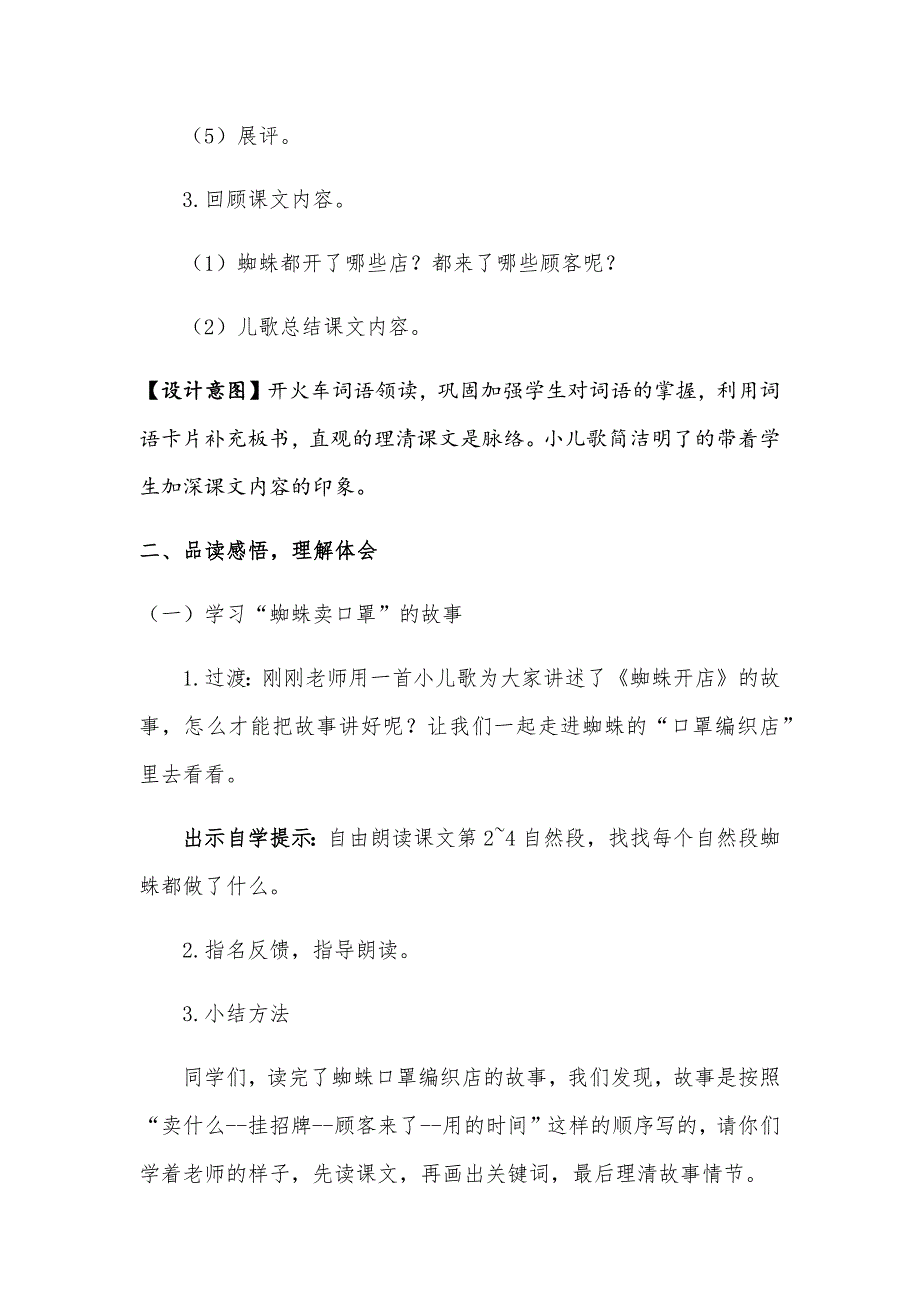 （5）展评。
3.回顾课文内容。
（1）蜘蛛都开了哪些店？都来了哪些顾客呢？
（2）儿歌总结课文内容。
【设计意图】开火车词语领读，巩固加强学生对词语的掌握，利用词
语卡片补充板书，直观的理清课文是脉络。小儿歌简洁明了的带着学
生加深课文内容的印象。
二、品读感悟，理解体会
（一）学习“蜘蛛卖口罩”的故事
1.过渡：刚刚老师用一首小儿歌为大家讲述了《蜘蛛开店》的故
事，怎么才能把故事讲好呢？让我们一起走进蜘蛛的“口罩编织店”
里去看看。
出示自学提示：自由朗读课文第2~4自然段，找找每个自然段蜘
蛛都做了什么。
2.指名反馈，指导朗读。
3.小结方法
同学们，读完了蜘蛛口罩编织店的故事，我们发现，故事是按照
“卖什么--挂招牌--顾客来了--用的时间”这样的顺序写的，请你们
学着老师的样子，先读课文，再画出关键词，最后理清故事情节。